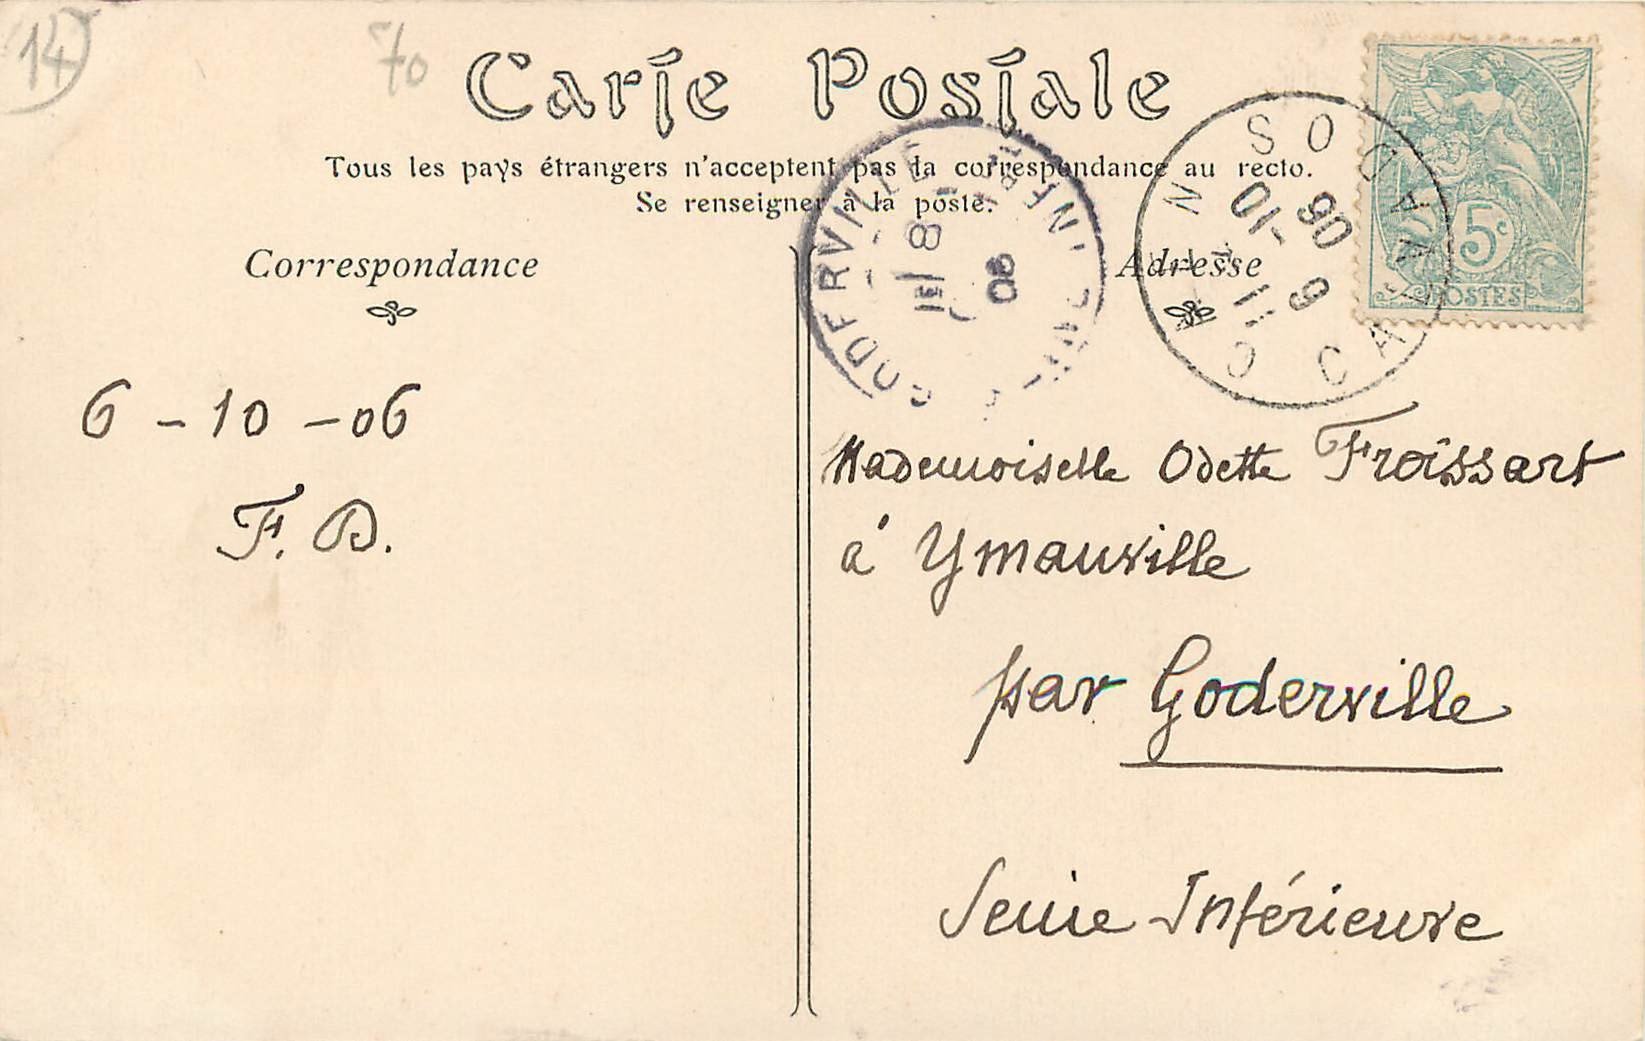 14
70
Carte Postale
Tous les pays étrangers n'acceptent pas la correspondance au recto.
Se renseigner à la poste.
Correspondance
Adresse
GODERVILLE
8
06
CALVADOS
CAEN
11
6 -10
06
5c
POSTES
6 - 10 - 06
F. D.
Mademoiselle Odette Froissart
à Ymauville
par Goderville
Seine Inférieure